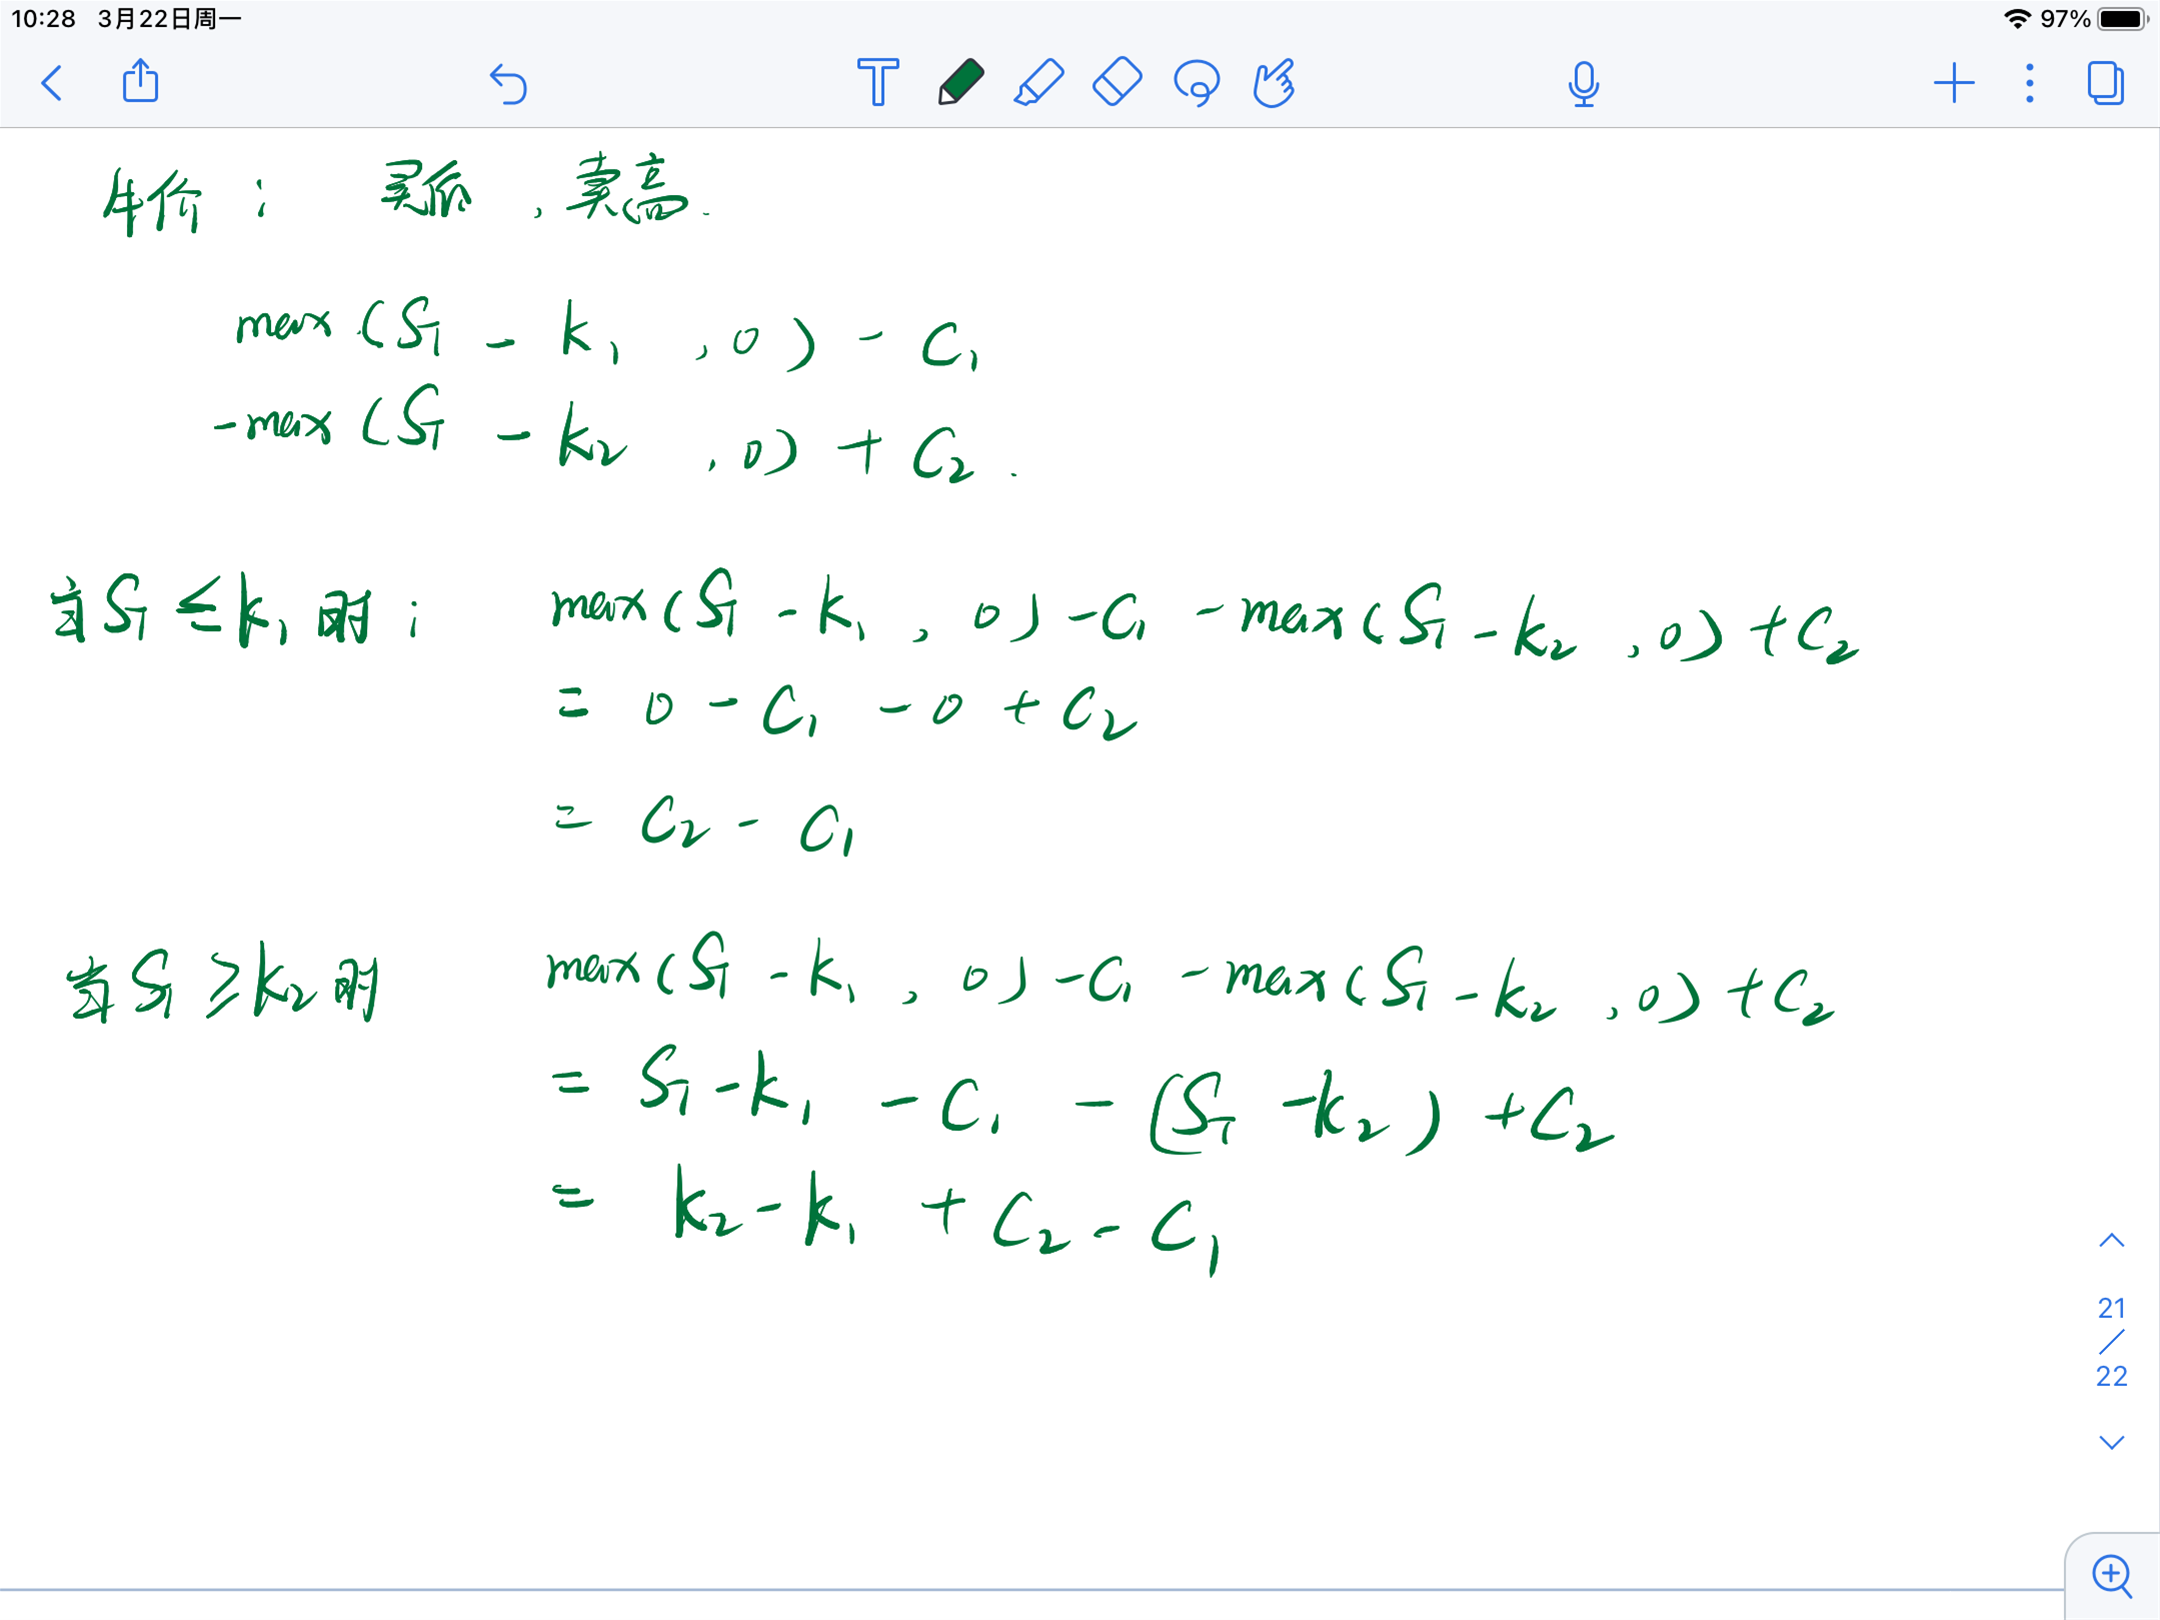 10:28 3月22日周一 97%
牛价： 买低，卖高.
max(S_T - k_1 , 0) - C_1
-max(S_T - k_2 , 0) + C_2 .
当S_T ≤ k_1 时： max(S_T - k_1 , 0) - C_1 - max(S_T - k_2 , 0) + C_2
= 0 - C_1 - 0 + C_2
= C_2 - C_1
当S_T ≥ k_2 时 max(S_T - k_1 , 0) - C_1 - max(S_T - k_2 , 0) + C_2
= S_T - k_1 - C_1 - (S_T - k_2) + C_2
= k_2 - k_1 + C_2 - C_1
21
/
22